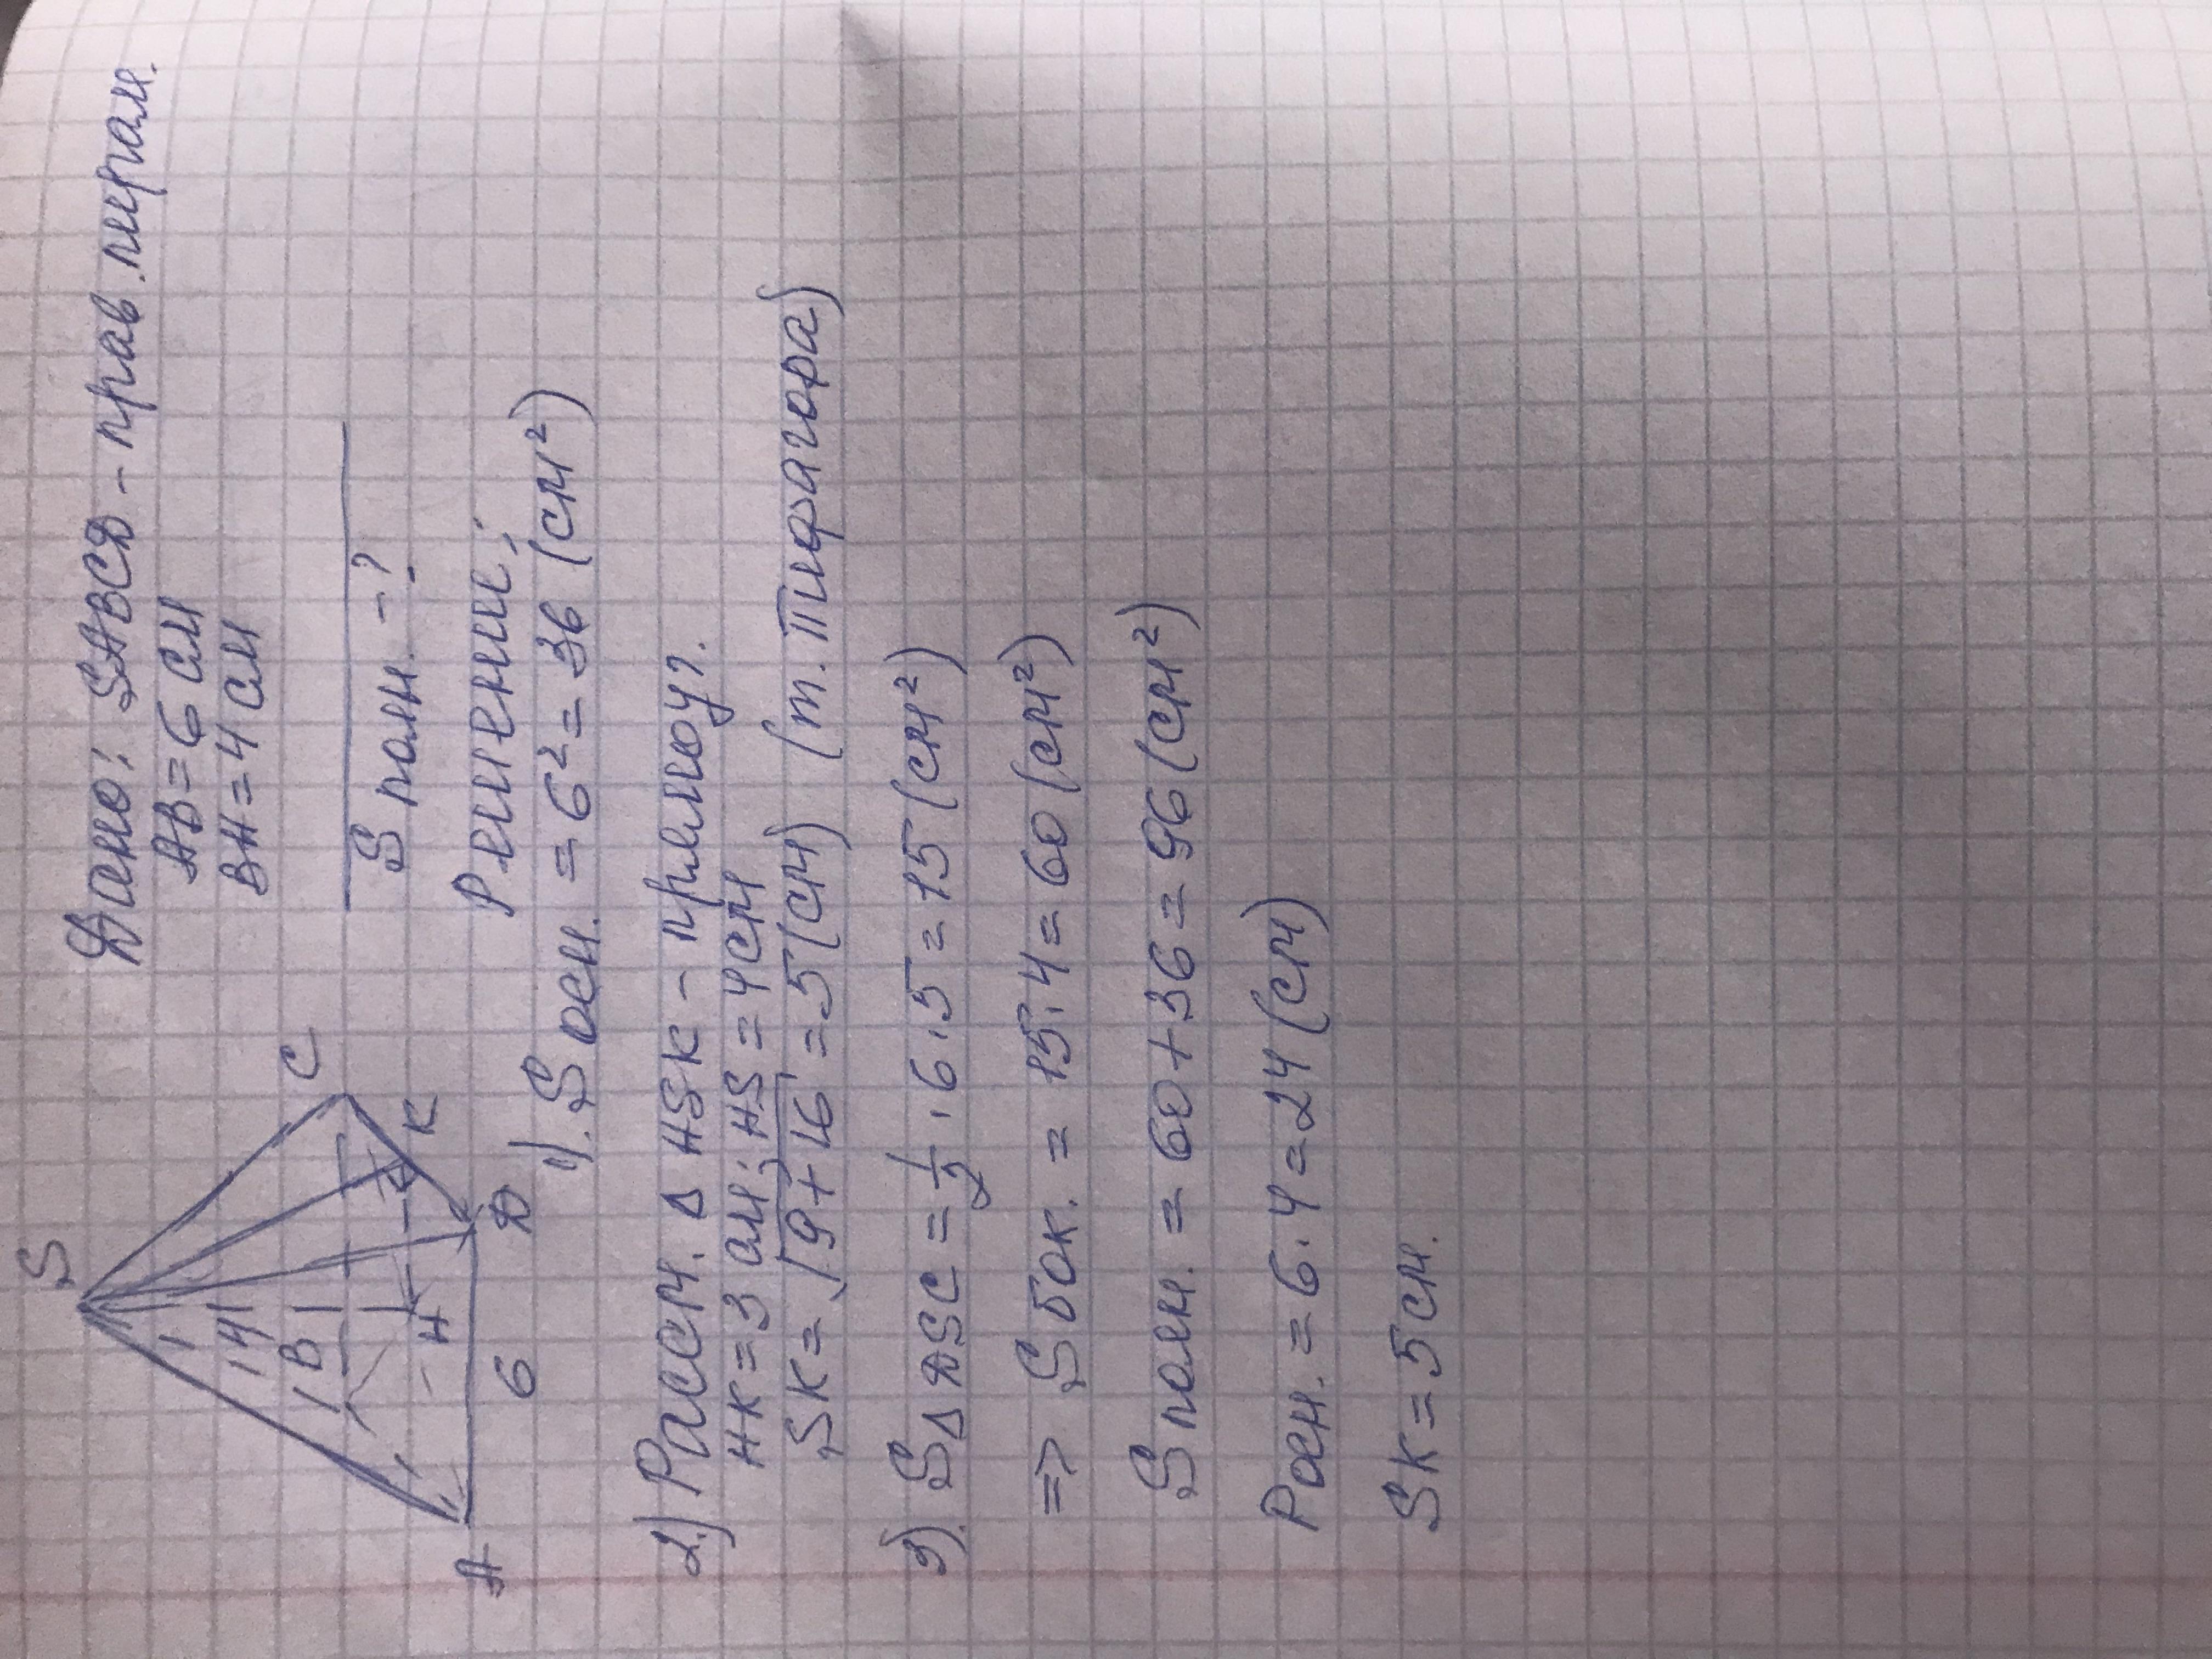 Дано: SABCD - прав. пирам.
AB = 6 см
BH = 4 см
S полн. - ?
S
14
B
C
H
K
A
6
D
Решение:
1). S осн. = 6² = 36 (см²)
2.) Рассм. Δ HSK - прямоуг.
HK = 3 см; HS = 4 см
SK = √9+16 = 5 (см) (т. Пифагора)
3). SΔDSC = 1/2 · 6 · 5 = 15 (см²)
=> S бок. = 15 · 4 = 60 (см²)
S полн. = 60 + 36 = 96 (см²)
Pосн. = 6 · 4 = 24 (см)
SK = 5 см.